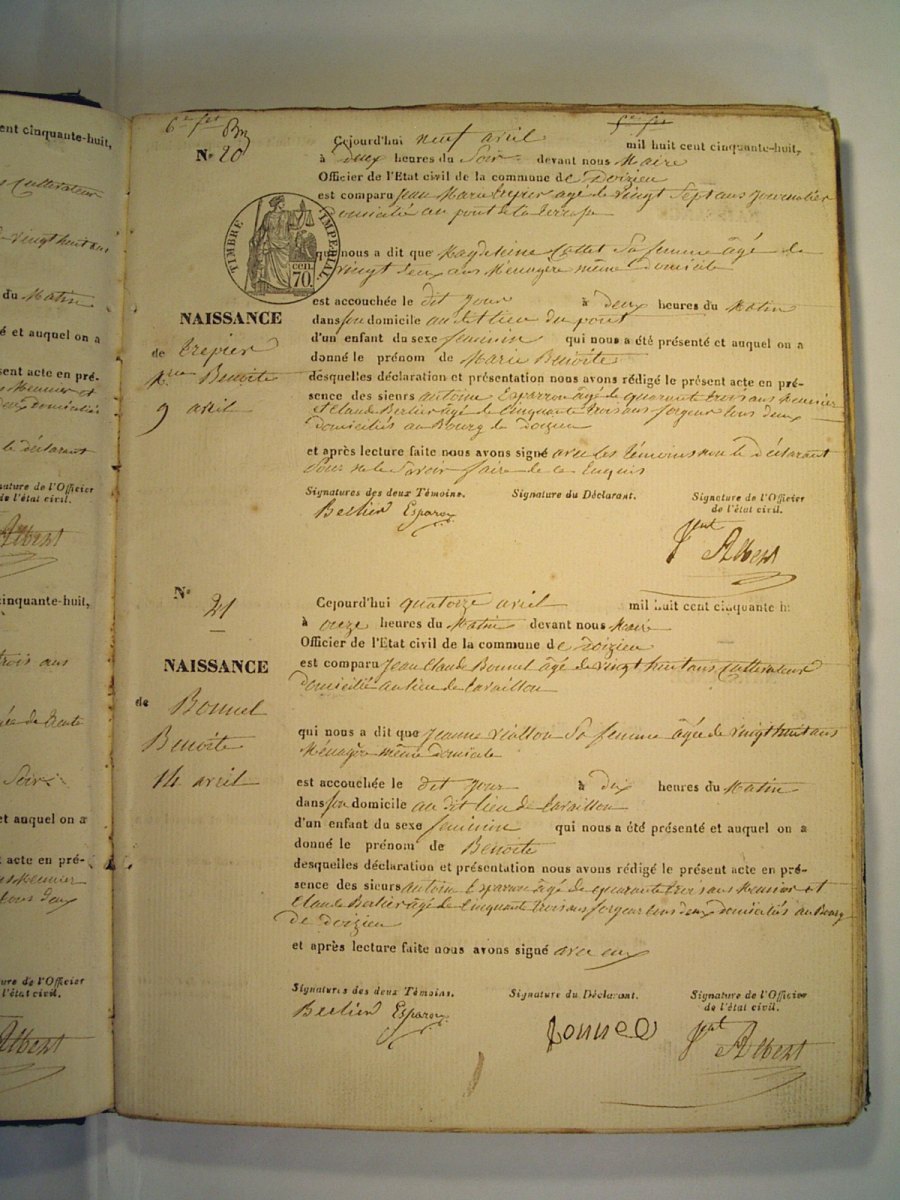 ent cinquante-huit,
Cultivateur
de vingt huit ans
du Matin
é et auquel on a
sent acte en pré-
Meunier et
deux domiciliés
le déclarant
nature de l'Officier
de l'état civil.
Albert
cinquante-huit,
trois ans
de trente
Soir
et auquel on a
acte en pré-
Meunier
tous deux
ure de l'Officier
l'état civil.
Albert
6e fet
No 20
Cejourd'hui neuf avril mil huit cent cinquante-huit,
à deux heures du Soir devant nous Maire
Officier de l'Etat civil de la commune de Doizieu
est comparu Jean Marie trepier âgé de vingt Sept ans Journalier
Domicilié au pont de la terrasse
TIMBRE IMPERIAL
cen. 70.
qui nous a dit que Magdeleine Collet Sa femme âgé de
vingt deux ans Ménagère même domicile
est accouchée le dit jour à deux heures du Matin
dans son domicile au dit lieu du pont
d'un enfant du sexe feminin qui nous a été présenté et auquel on a
donné le prénom de Marie Benoite
NAISSANCE
de trepier
Benoite
9 avril
desquelles déclaration et présentation nous avons rédigé le présent acte en pré-
sence des sieurs antoine Esparron âgé de quarante trois ans meunier
et Claude Berlier âgé de Cinquante trois ans forgeur tous deux
domiciliés au Bourg de doizieu
et après lecture faite nous avons signé avec les témoins non le déclarant
pour ne le Savoir faire de ce Enquis
Signatures des deux Témoins. Signature du Déclarant. Signature de l'Officier
de l'état civil.
Berlier Esparon
Albert
No 21
Cejourd'hui quatorze avril mil huit cent cinquante h
à onze heures du Matin devant nous Maire
Officier de l'Etat civil de la commune de doizieu
est comparu Jean Claude Bonnel âgé de vingt huit ans Cultivateur
domicilié au lieu de Cavaillon
NAISSANCE
de Bonnel
Benoite
14 avril
qui nous a dit que Jeanne Viallon Sa femme âgée de vingt huit ans
Ménagère même domicile
est accouchée le dit jour à dix heures du Matin
dans son domicile au dit lieu de Cavaillon
d'un enfant du sexe feminin qui nous a été présenté et auquel on a
donné le prénom de Benoite
desquelles déclaration et présentation nous avons rédigé le présent acte en pré-
sence des sieurs antoine Esparron âgé de quarante trois ans Meunier et
Claude Berlier âgé de Cinquante trois ans forgeur tous deux domiciliés au Bourg
de doizieu
et après lecture faite nous avons signé avec eux
Signatures des deux Témoins. Signature du Déclarant. Signature de l'Officier
de l'état civil.
Berlier Esparon Bonnel Albert